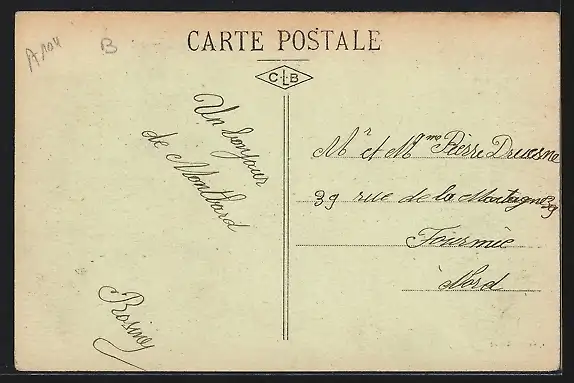 A 104
B
CARTE POSTALE
C L B
Un bonjour
de Montbard
Mr et Mme Pierre Druesne
39 rue de la Montagne 39
Fourmie
Nord